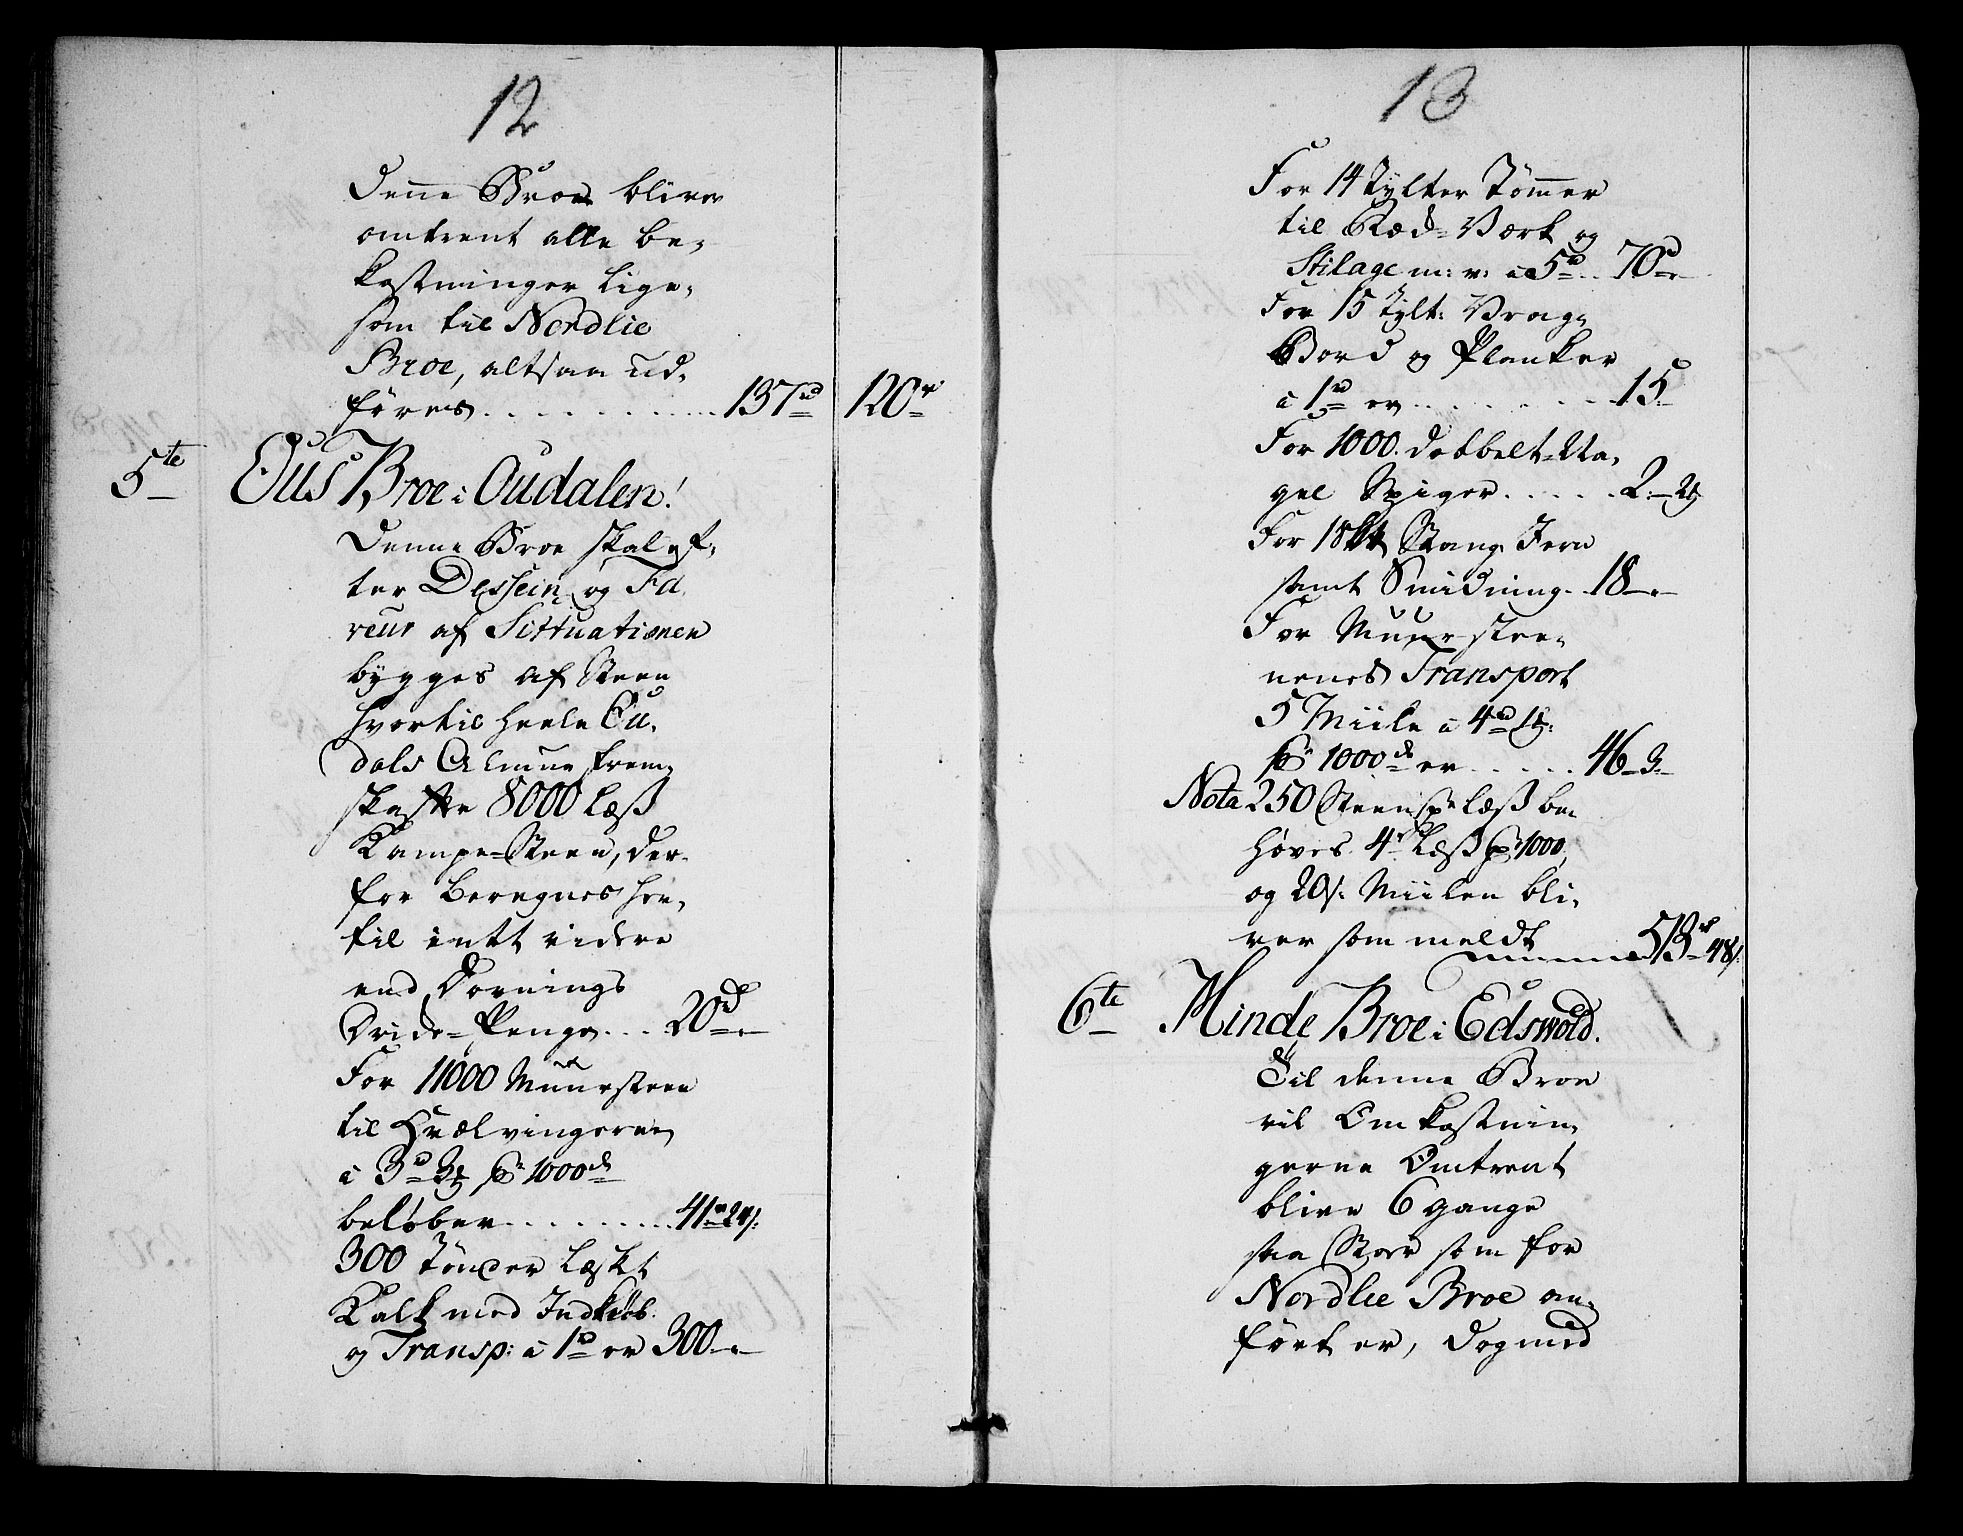 12
Denne Broe bliver
omtrent alle be-
kostninger lige-
som til Nordlie
Broe, altsaa ud-
føres . . . . . . . . . . 137 rd 120 rd
5te Ous Broe i Oudalen!
Denne Broe skal ef-
ter Dessein og Fa-
veur af Sittuationen
bygges af Steen
hvortil heele Ou-
dals Almue frem-
skaffe 8000 læss
Kampe-Steen, der-
for beregnes her-
til intt videre
end Dornings
Dride-Penge . . . 20 rd -
For 11000 Muursteen
til Hvælvingerne
a 3 rd 3 pr 1000de
beløber . . . . . . . . . 41 rd 24 s:
300 Tønder læsket
Kalk med Indkiøb
og Transp: a 1 rd er 300 -
13
For 14 Tylter Tømmer
til Ræd-Værk og
Stilage m: v: a 5 rd . . 70 rd -
For 15 Tylt: Vrag-
Bord og Planker
a 1 rd er . . . . . . . . 15
For 1000. dobbelt-Na-
gel Spiger . . . . . 2. - 2
For 18 Stang Jern
samt Smidning - 18 -
For Muur stee-
nenes Transport
5 Miile a 4 rd 1:
pr 1000de er . . . . . 46 - 3 -
Nota 250 Steen pr læss be-
høves 4r Læss pr 1000,
og 20 s: Miilen bli-
ver som meldt
513 rd 48 s:
6te Minde Broe i Edswold.
Til denne Broe
vil Omkostnin-
gerne Omtrent
blive 6 gange
saa Stoer som for
Nordlie Broe an-
ført er, dog med